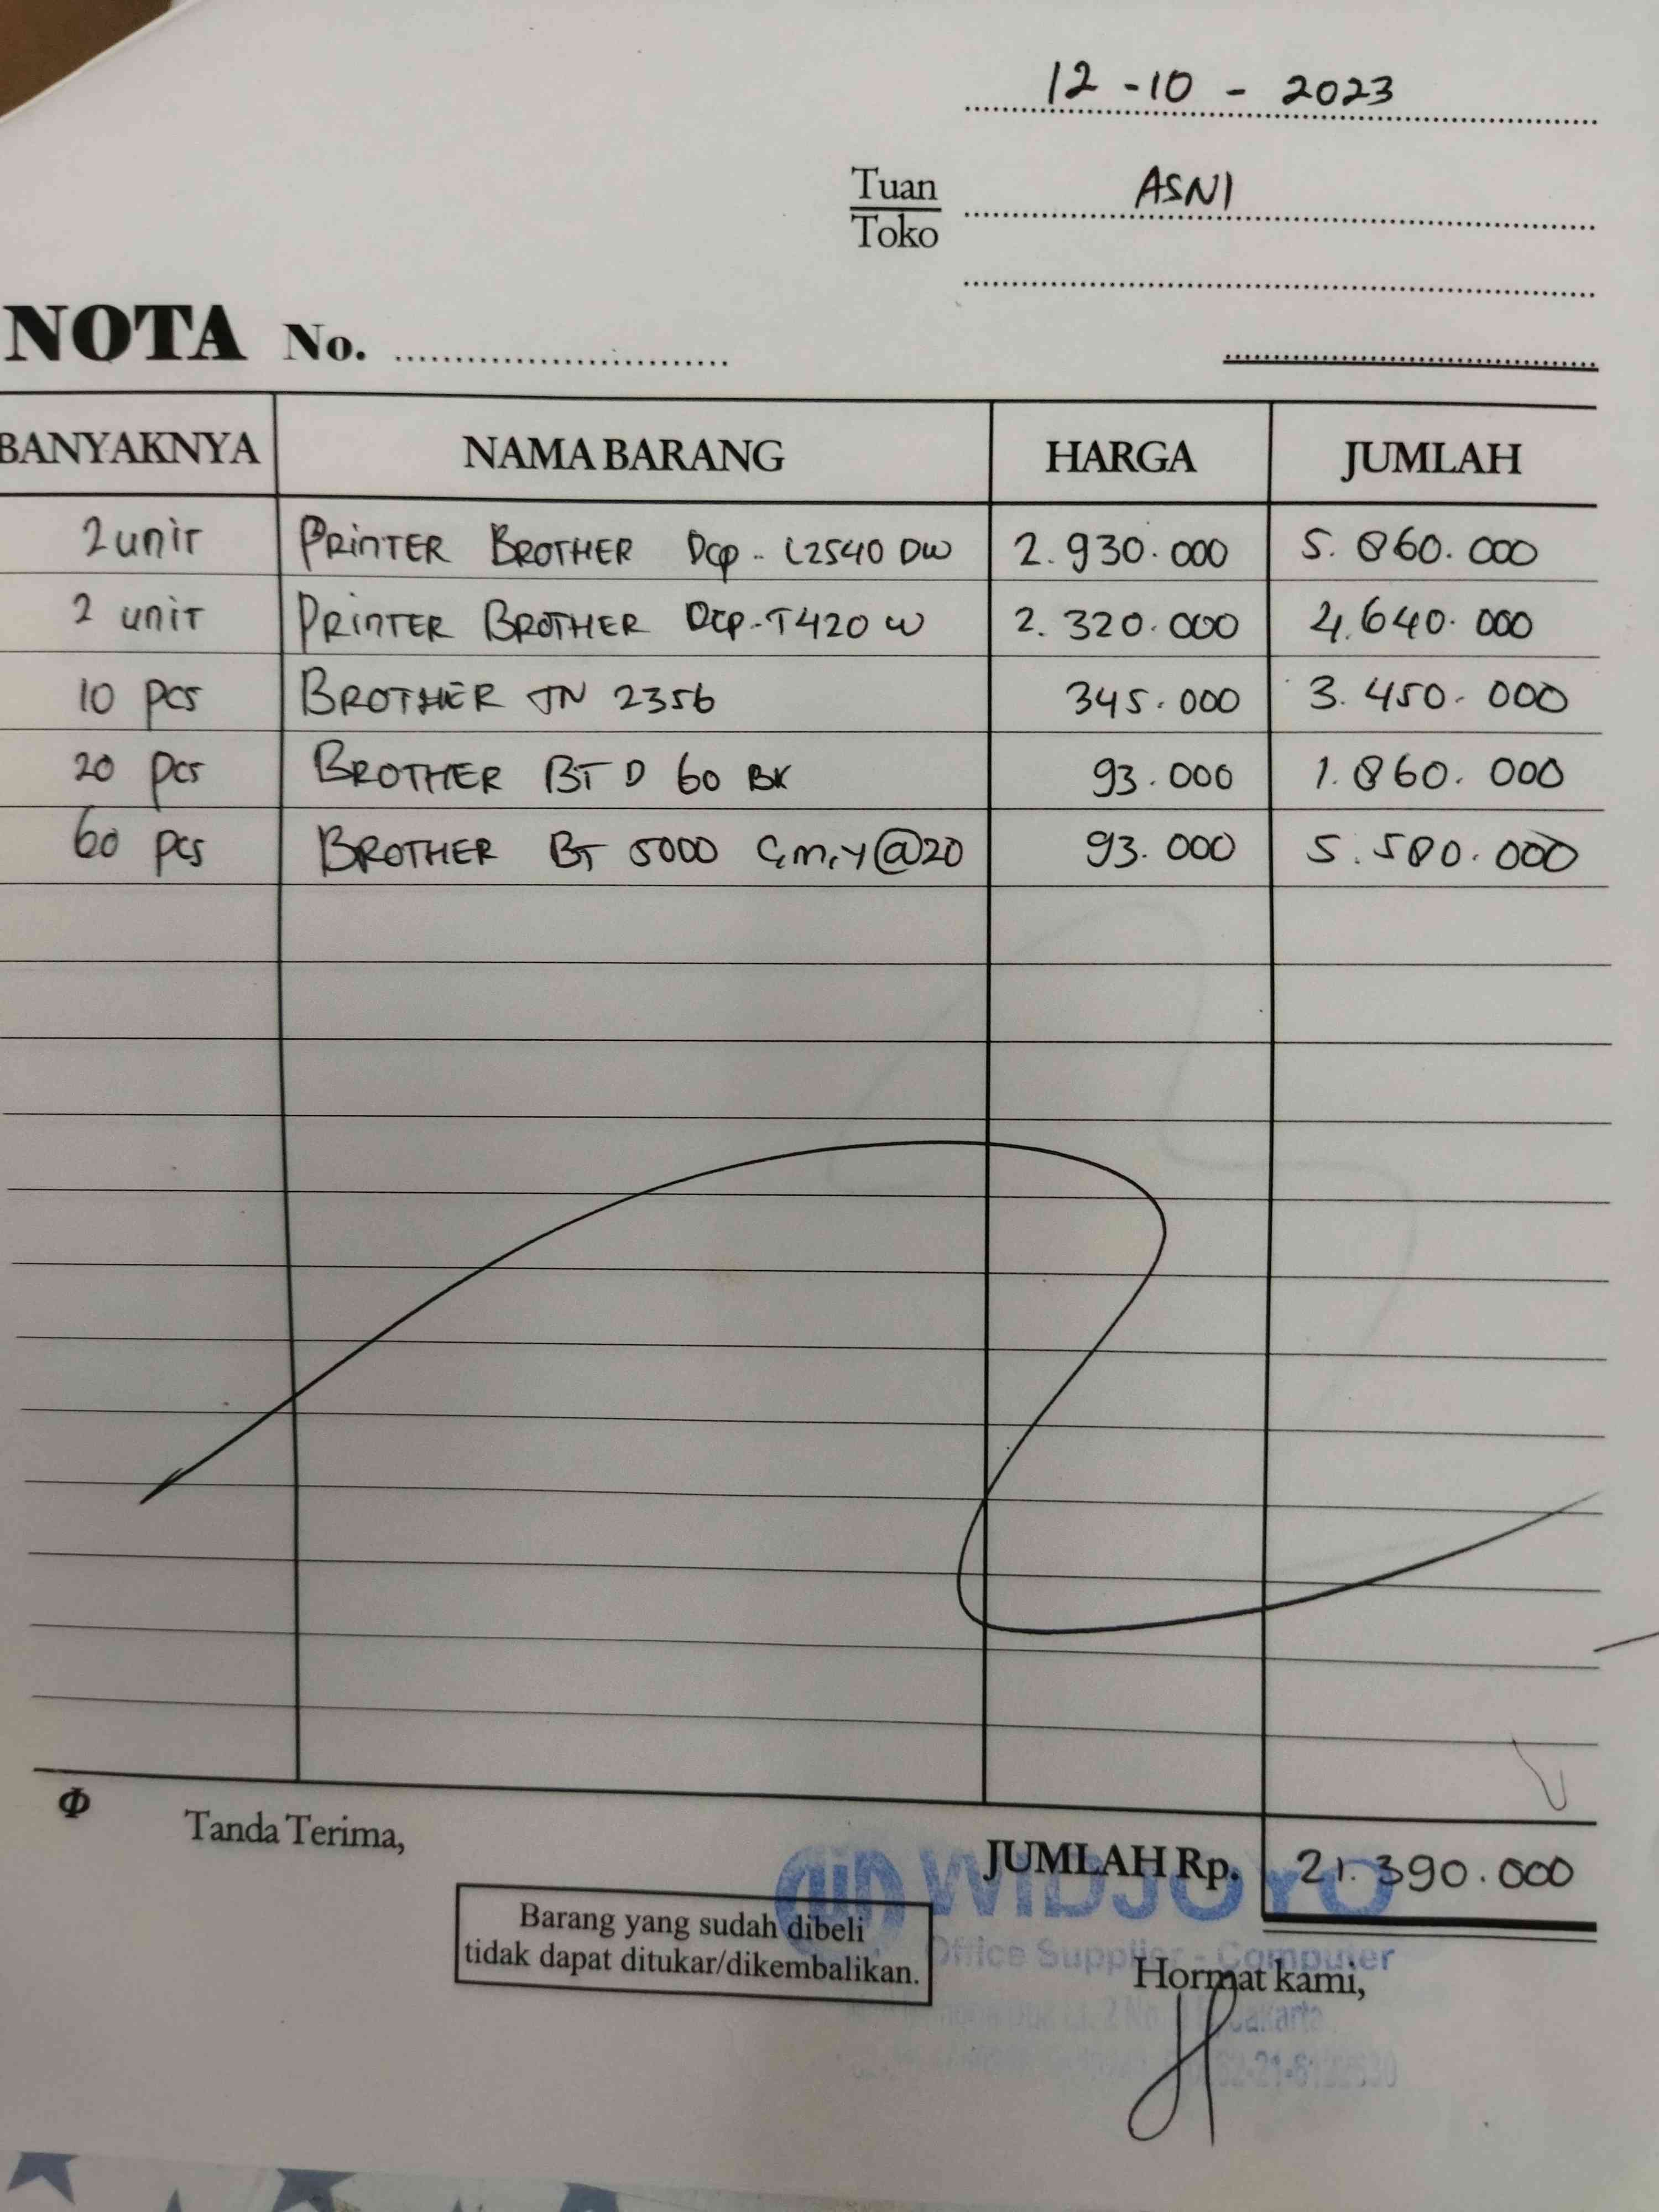 12 - 10 - 2023
Tuan
Toko
ASNI
NOTA No.
BANYAKNYA NAMA BARANG HARGA JUMLAH
2 unit PRINTER BROTHER Dcp - L2540 DW 2.930.000 5.860.000
2 unit PRINTER BROTHER Dcp-T420 W 2.320.000 4.640.000
10 pcs BROTHER TN 2356 345.000 3.450.000
20 pcs BROTHER BT D 60 BK 93.000 1.860.000
60 pcs BROTHER BT 5000 C,m,y@20 93.000 5.580.000
Φ Tanda Terima,
JUMLAH Rp. 21.390.000
WIDJOYO
Barang yang sudah dibeli
tidak dapat ditukar/dikembalikan.
Office Supplier - Computer
Hormat kami,
Jakarta